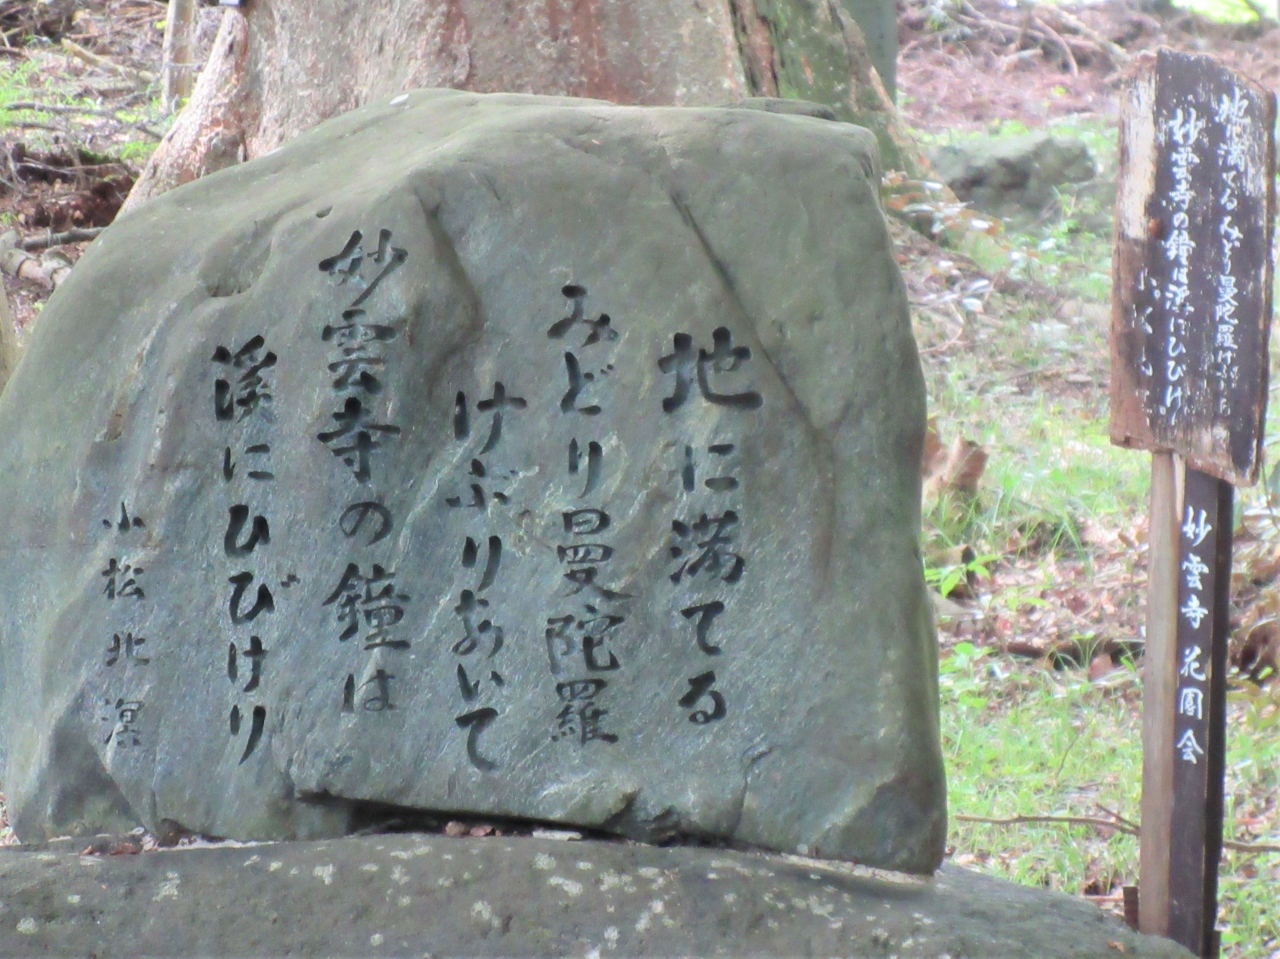 地に満てる
みどり曼陀羅
けぶりあいて
妙雲寺の鐘は
渓にひびけり
小松北溟
地に満てるみどり曼陀羅けぶり
妙雲寺の鐘は渓にひびけり
小松北
妙雲寺 花園会